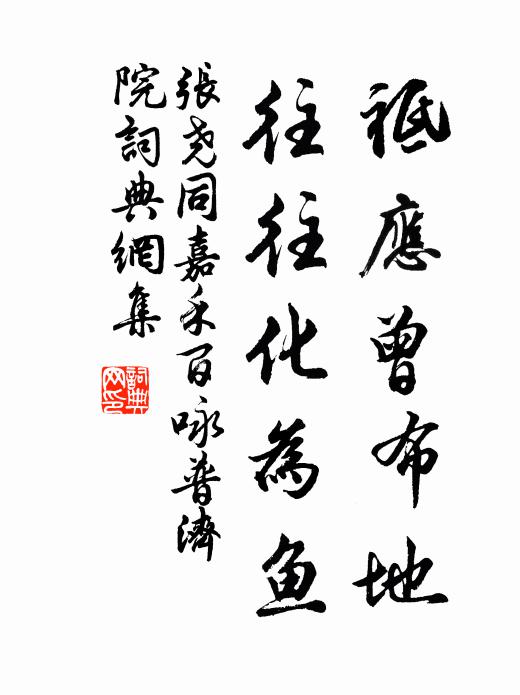 祗應曾布地
往往化為魚
張堯同嘉禾百咏普濟
院詞典網集
詞典網印